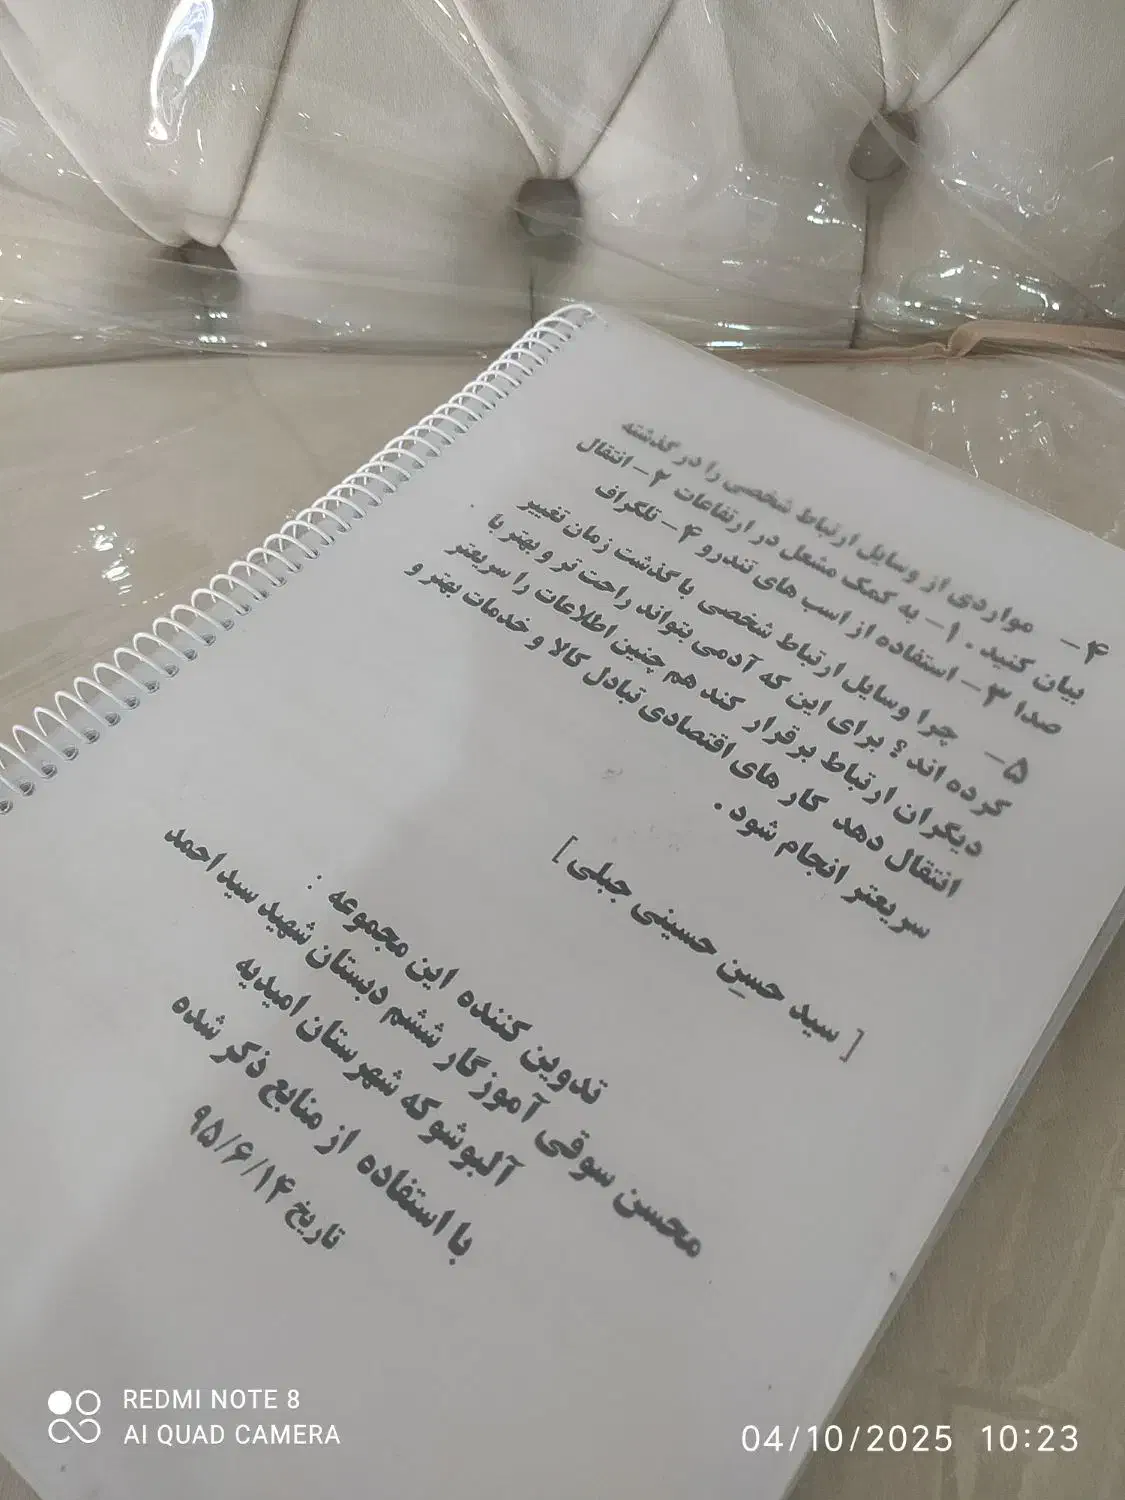 ۴- مواردی از وسایل ارتباط شخصی را در گذشته
بیان کنید . ۱- به کمک مشعل در ارتفاعات ۲- انتقال
صدا ۳- استفاده از اسب های تندرو ۴- تلگراف
۵- چرا وسایل ارتباط شخصی با گذشت زمان تغییر
کرده اند؟ برای این که آدمی بتواند راحت تر و بهتر با
دیگران ارتباط برقرار کند هم چنین اطلاعات را سریعتر
انتقال دهد کار های اقتصادی تبادل کالا و خدمات بهتر و
سریعتر انجام شود .
[ سید حسن حسینی جبلی ]
تدوین کننده این مجموعه :
محسن سوقی آموزگار ششم دبستان شهید سید احمد
آلبوشوکه شهرستان امیدیه
با استفاده از منابع ذکر شده
تاریخ ۹۵/۶/۱۴
REDMI NOTE 8
AI QUAD CAMERA
04/10/2025 10:23